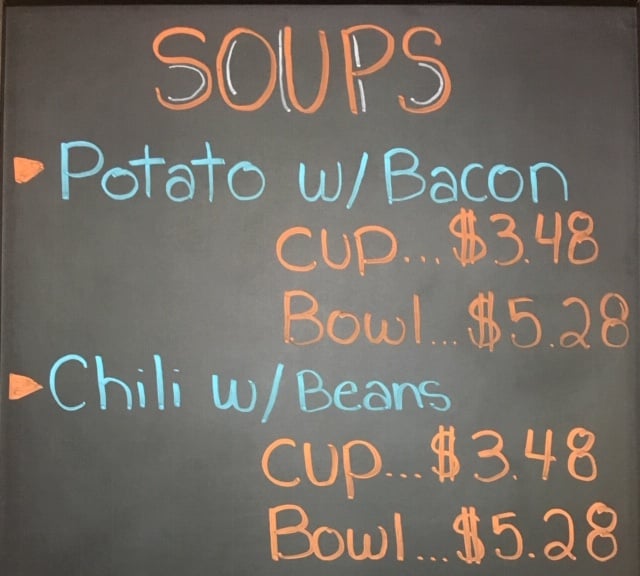 SOUPS
Potato w/ Bacon
CUP...$3.48
Bowl...$5.28
Chili w/ Beans
CUP...$3.48
Bowl...$5.28